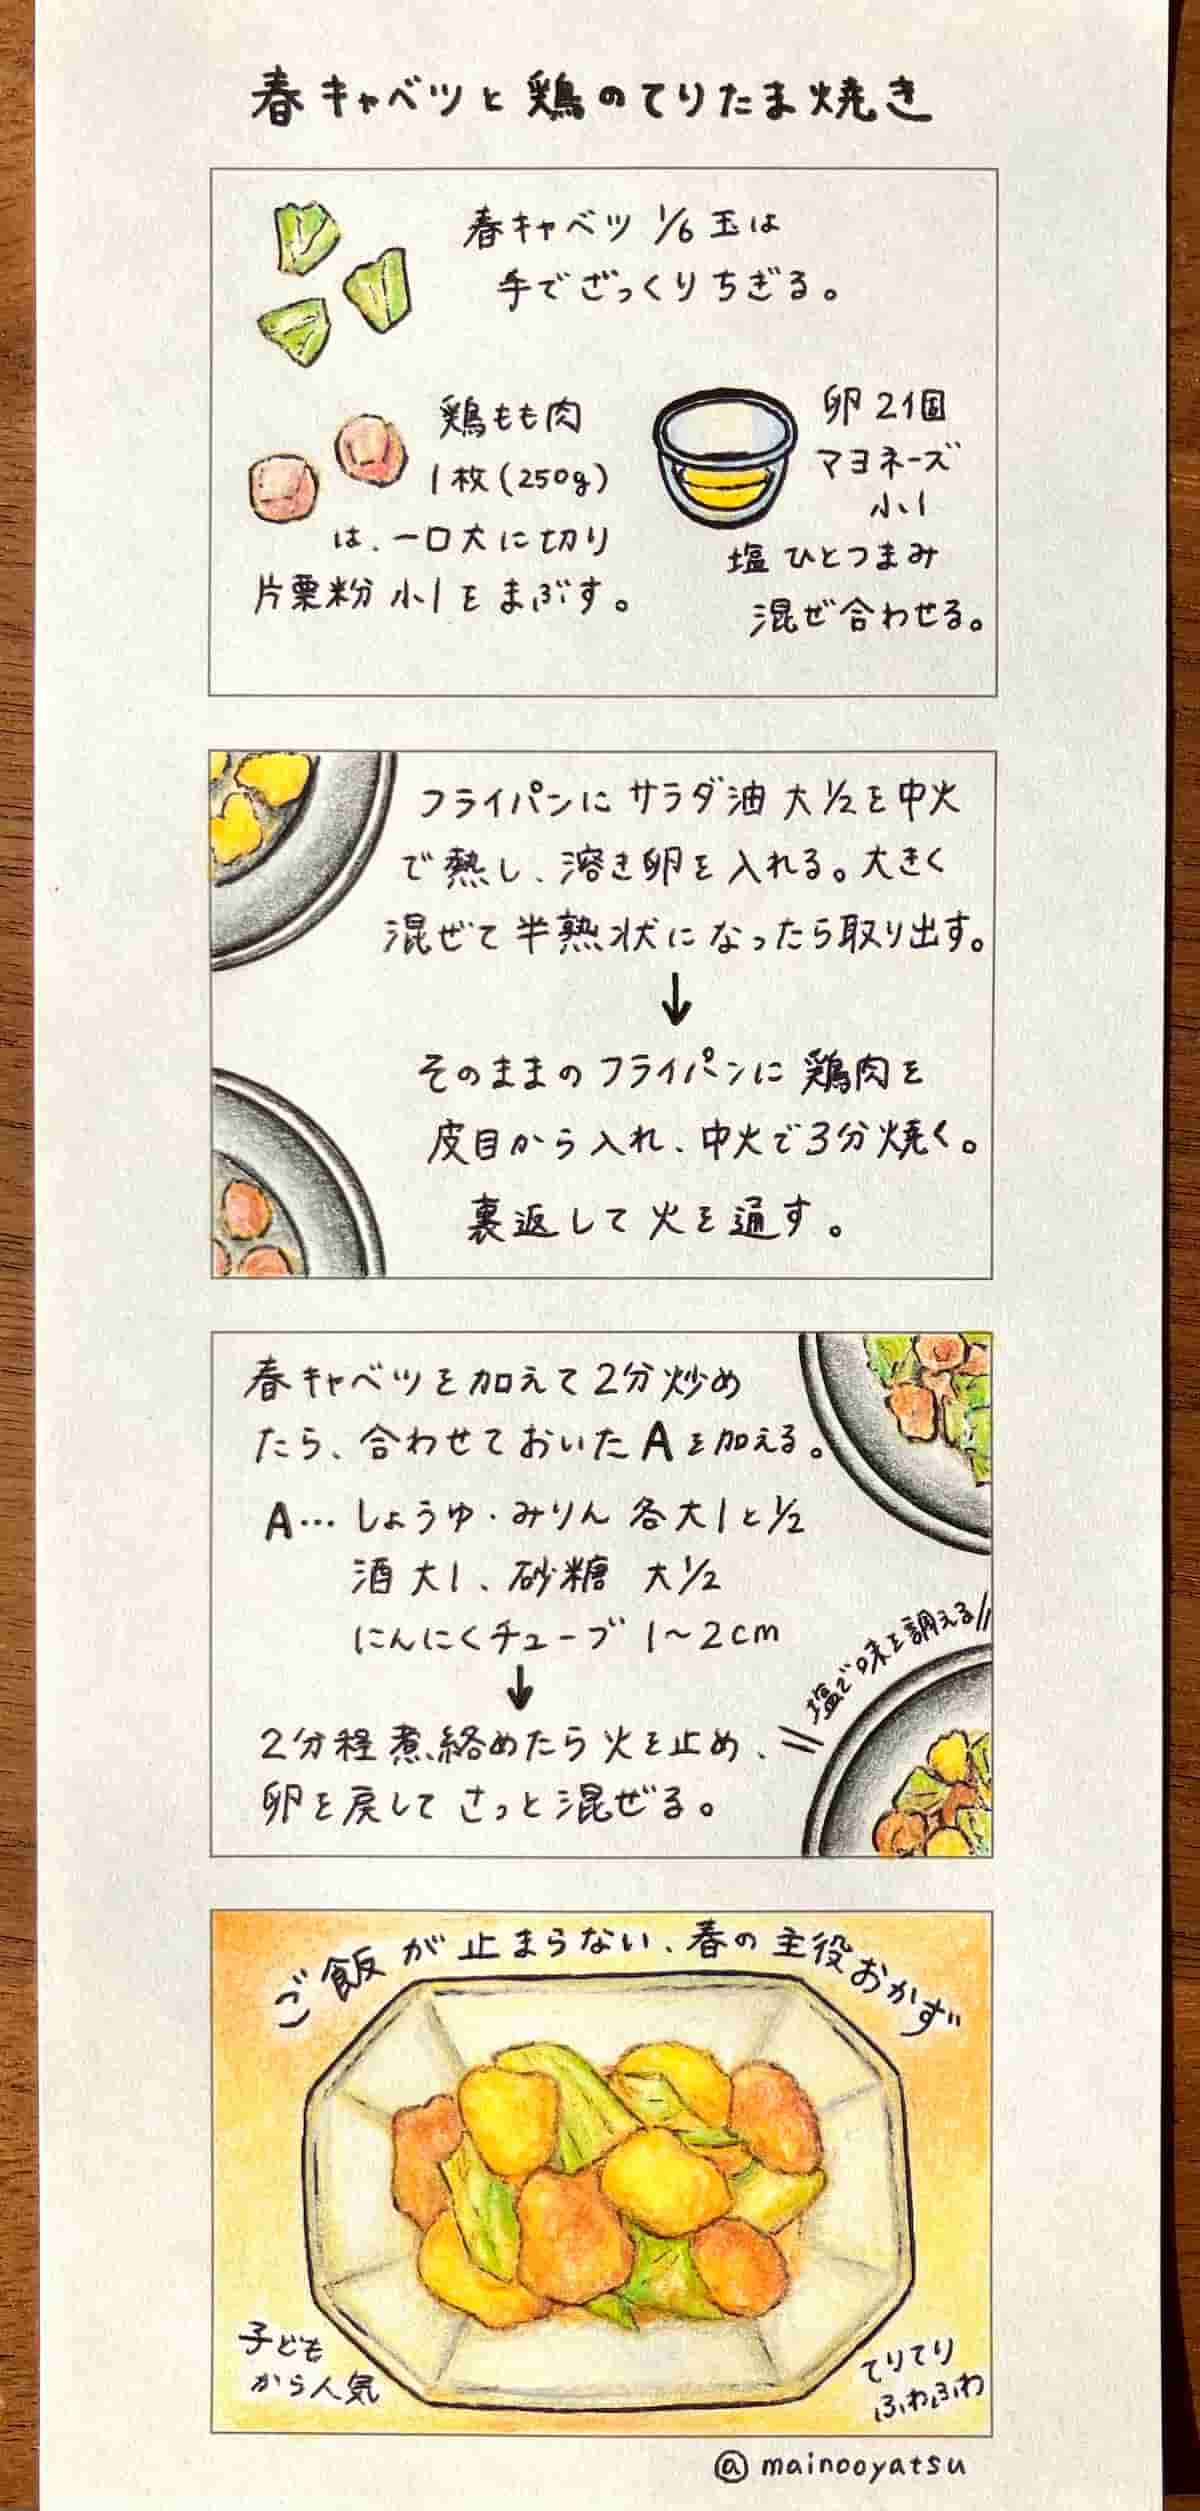 春キャベツと鶏のてりたま焼き
春キャベツ 1/6 玉は
手でざっくりちぎる。
鶏もも肉
1枚(250g)
は、一口大に切り
片栗粉 小1をまぶす。
卵2個
マヨネーズ
小1
塩ひとつまみ
混ぜ合わせる。
フライパンにサラダ油 大1/2を中火
で熱し、溶き卵を入れる。大きく
混ぜて半熟状になったら取り出す。
↓
そのままのフライパンに鶏肉を
皮目から入れ、中火で3分焼く。
裏返して火を通す。
春キャベツを加えて2分炒め
たら、合わせておいたAを加える。
A…しょうゆ・みりん 各大1と1/2
酒 大1、砂糖 大1/2
にんにくチューブ 1〜2cm
↓
2分程煮絡めたら火を止め、
卵を戻してさっと混ぜる。
塩で味を調える
ご飯が止まらない、春の主役おかず
子ども
から人気
てりてり
ふわふわ
@mainooyatsu